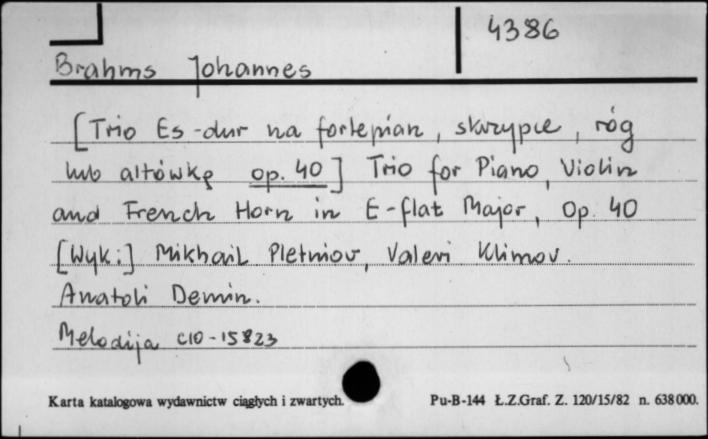 4386
Brahms Johannes
[Trio Es-dur na fortepian, skrzypce, róg
lub altówkę op. 40] Trio for Piano, Violin
and French Horn in E-flat Major, Op. 40
[Wyk:] Mikhail Pletniov, Valeri Klimov.
Anatoli Demin.
Melodija C10-15823
Karta katalogowa wydawnictw ciągłych i zwartych. Pu-B-144 Ł.Z.Graf. Z. 120/15/82 n. 638000.